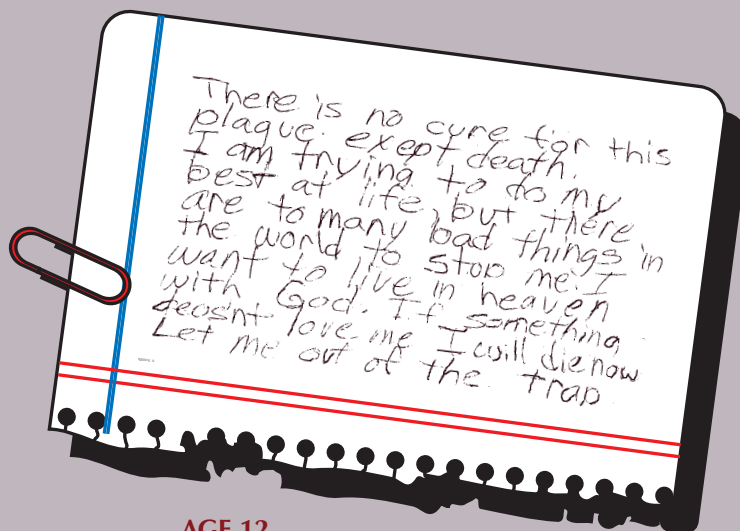 There is no cure for this
plaque. exept death.
I am trying to do my
best at life, but there
are to many bad things in
the world to stop me. I
want to live in heaven
with God. If something
deosnt love me I will die now
Let me out of the trap
AGE 12